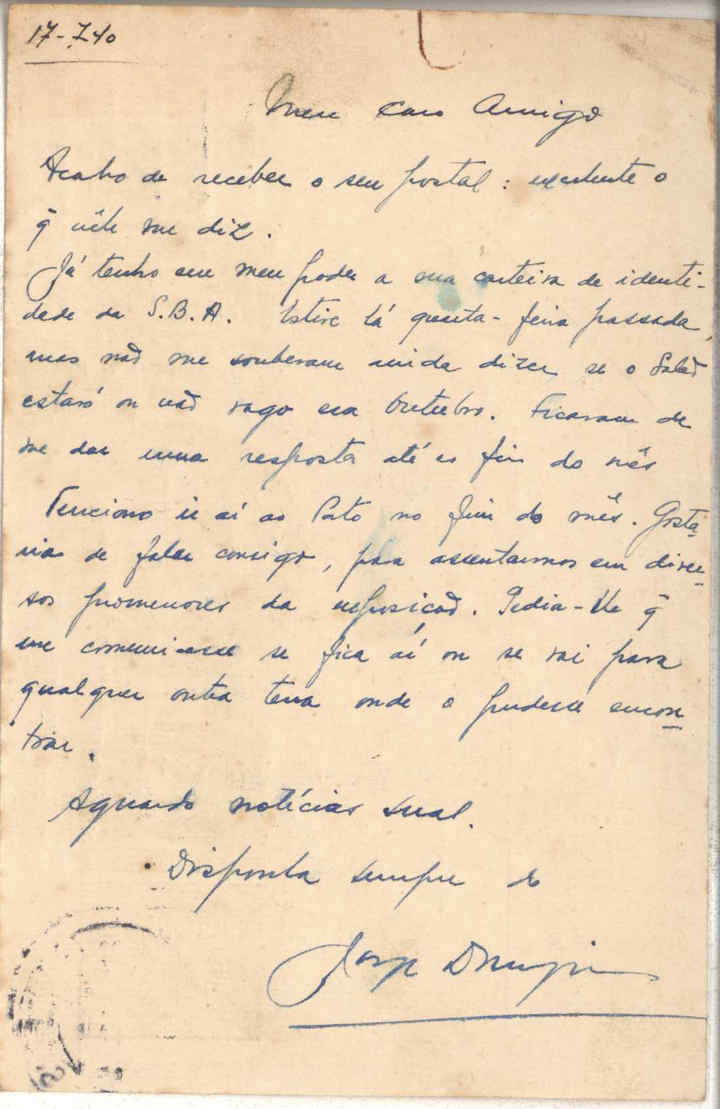 17-7-40
Meu caro Amigo
Acabo de receber o seu postal: excelente o
q̃ nêle me diz.
Já tenho em meu poder a sua carteira de identi-
dade da S.B.A. Estive lá quinta-feira passada,
mas não me souberam ainda dizer se o Salão
estará ou não vago em Outubro. Ficaram de
me dar uma resposta até ao fim do mês
Tenciono ir aí ao Porto no fim do mês. Gosta-
ria de falar consigo, para assentarmos em diver-
sos promenores da exposição. Pedia-lhe q̃
me comunicasse se fica aí ou se vai para
qualquer outra terra onde o pudesse encon-
trar.
Aguardo notícias suas.
Disponha sempre do
Jorge